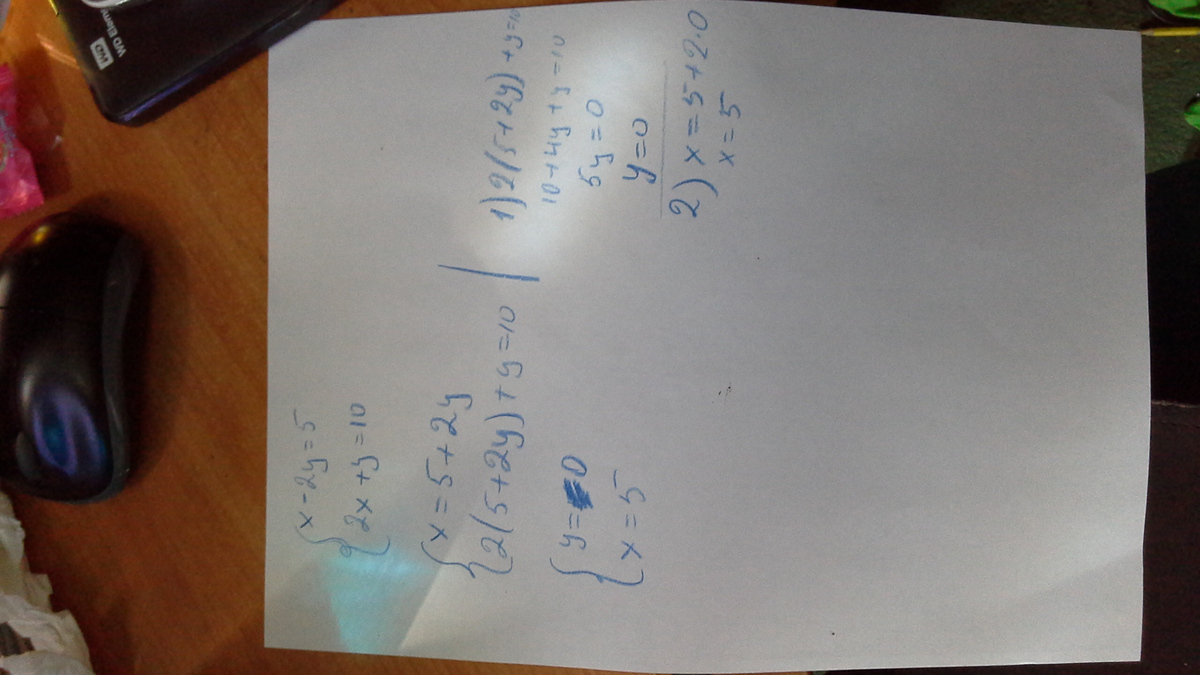 x-2y=5
2x+y=10
x=5+2y
2(5+2y)+y=10
y=0
x=5
1) 2(5+2y)+y=10
10+4y+y=10
5y=0
y=0
2) x=5+2·0
x=5
WD
WD Elem